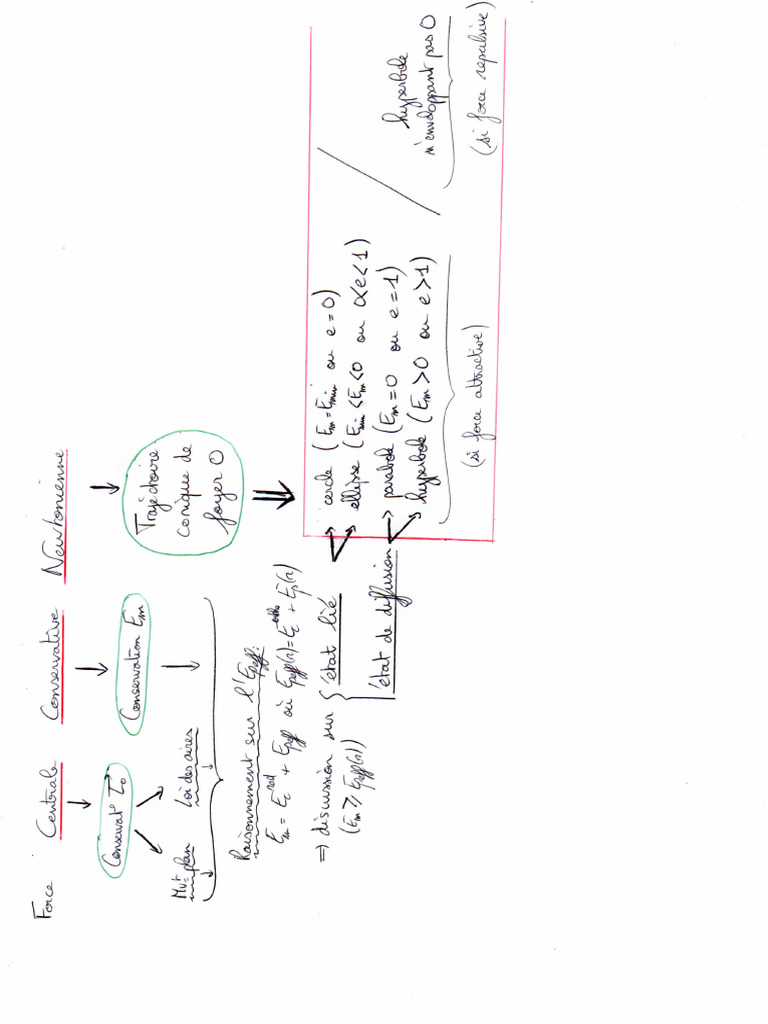 Force Centrale Conservative Newtonienne
Conservat° L₀
Conservation Em
Trajectoire
conique de
foyer O
Mvt plan
Loi des aires
Raisonnement sur l'Epeff:
Em = Ec rad + Epeff où Epeff(r) = Ec orth + Ep(r)
⇒ discussion sur
(Em ≥ Epeff(r))
état lié
état de diffusion
cercle (Em = Emin ou e = 0)
ellipse (Emin < Em < 0 ou 0<e<1)
parabole (Em = 0 ou e = 1)
hyperbole (Em > 0 ou e > 1)
(si force attractive)
hyperbole
n'enveloppant pas O
(si force repulsive)